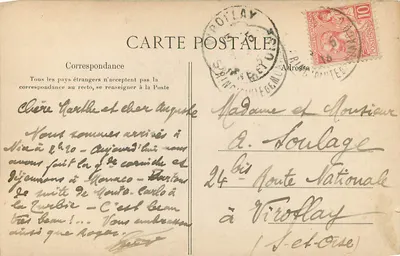 CARTE POSTALE
Correspondance
Tous les pays étrangers n'acceptent pas la
correspondance au recto, se renseigner à la Poste
Adresse
Chère Marthe et cher Auguste
Nous sommes arrivés à
Nice à 2h20 - Aujourd'hui nous
avons fait la gde corniche et
déjeunons à Monaco - Partons
de suite de Monte-Carlo à
la Turbie - C'est beau
très beau !... Vous embrassons
ainsi que
Madame et Monsieur
A. Soulage
24 bis Route Nationale
à Viroflay
(S-et-Oise)
VIROFLAY
10